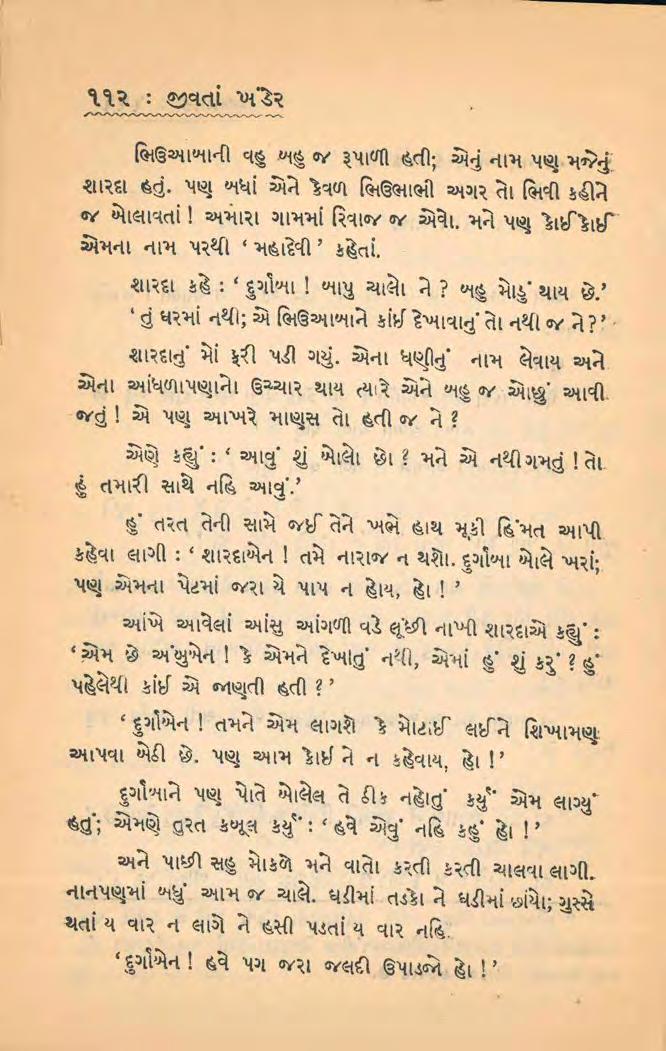 ૧૧૨ : જીવતાં ખંડેર
ભિઉઆબાની વહુ બહુ જ રૂપાળી હતી; એનું નામ પણ મજેનું
શારદા હતું. પણ બધાં એને કેવળ ભિઉભાભી અગર તો ભિવી કહીને
જ બોલાવતાં ! અમારા ગામમાં રિવાજ જ એવો. મને પણ કોઈ કોઈ
એમના નામ પરથી ‘ મહાદેવી ’ કહેતાં.
શારદા કહે : ‘ દુર્ગાબા ! બાપુ ચાલો ને ? બહુ મોડું થાય છે.’
‘ તું ઘરમાં નથી; એ ભિઉઆબાને કાંઈ દેખાવાનું તો નથી જ ને ? ’
શારદાનું મોં ફરી પડી ગયું. એના ધણીનું નામ લેવાય અને
એના આંધળાપણાનો ઉચ્ચાર થાય ત્યારે એને બહુ જ ઓછું આવી
જતું ! એ પણ આખરે માણસ તો હતી જ ને ?
એણે કહ્યું : ‘ આવું શું બોલો છો ? મને એ નથી ગમતું ! તો
હું તમારી સાથે નહિ આવું.’
હું તરત તેની સામે જઈ તેને ખભે હાથ મૂકી હિંમત આપી
કહેવા લાગી : ‘ શારદાબેન ! તમે નારાજ ન થશો. દુર્ગાબા બોલે ખરાં;
પણ એમના પેટમાં જરા યે પાપ ન હોય, હો ! ’
આંખે આવેલાં આંસુ આંગળી વડે લૂછી નાખી શારદાએ કહ્યું :
‘ એમ છે અંબુબેન ! કે એમને દેખાતું નથી, એમાં હું શું કરું ? હું
પહેલેથી કાંઈ એ જાણતી હતી ? ’
‘ દુર્ગાબેન ! તમને એમ લાગશે કે મોટાઈ લઈને શિખામણ
આપવા બેઠી છે. પણ આમ કોઈ ને ન કહેવાય, હો !’
દુર્ગાબાને પણ પોતે બોલેલ તે ઠીક નહોતું કર્યું એમ લાગ્યું
હતું; એમણે તુરત કબૂલ કર્યું : ‘ હવે એવું નહિ કહું હો ! ’
અને પાછી સહુ મોકળે મને વાતો કરતી કરતી ચાલવા લાગી.
નાનપણમાં બધું આમ જ ચાલે. ઘડીમાં તડકો ને ઘડીમાં છાંયો; ગુસ્સે
થતાં ય વાર ન લાગે ને હસી પડતાં ય વાર નહિ.
‘ દુર્ગાબેન ! હવે પગ જરા જલદી ઉપાડજો હો ! ’